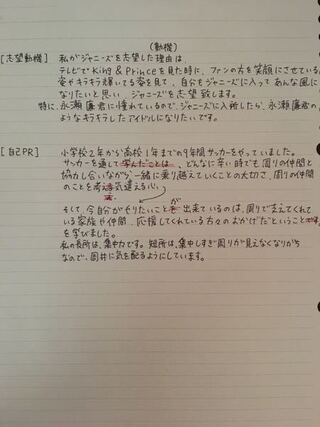 (動機)
[志望動機] 私がジャニーズを志望した理由は、
テレビでKing & Princeを見た時に、ファンの方を笑顔にさせている
姿やキラキラ輝いてる姿を見て、自分もジャニーズに入ってあんな風に
なりたいと思い ジャニーズを志望致します。
特に、永瀬廉君に憧れているので、ジャニーズに入所したら、永瀬廉君の
ようなキラキラしたアイドルになりたいです。
[自己PR] 小学校2年から高校1年までの9年間サッカーをやっていました。
サッカーを通して学んだことは、どんなに辛い時でも周りの仲間と
協力し合いながら、一緒に乗り越えていくことの大切さ、周りの仲間
のことを考え気遣える心。
そして、今自分がやりたいことが出来ているのは、周りで支えてくれて
いる家族や仲間、応援してくれている方々のおかげだということです。
を学びました。
私の長所は、集中力です。短所は、集中しすぎ周りが見えなくなりがち
なので、周囲に気を配るようにしています。